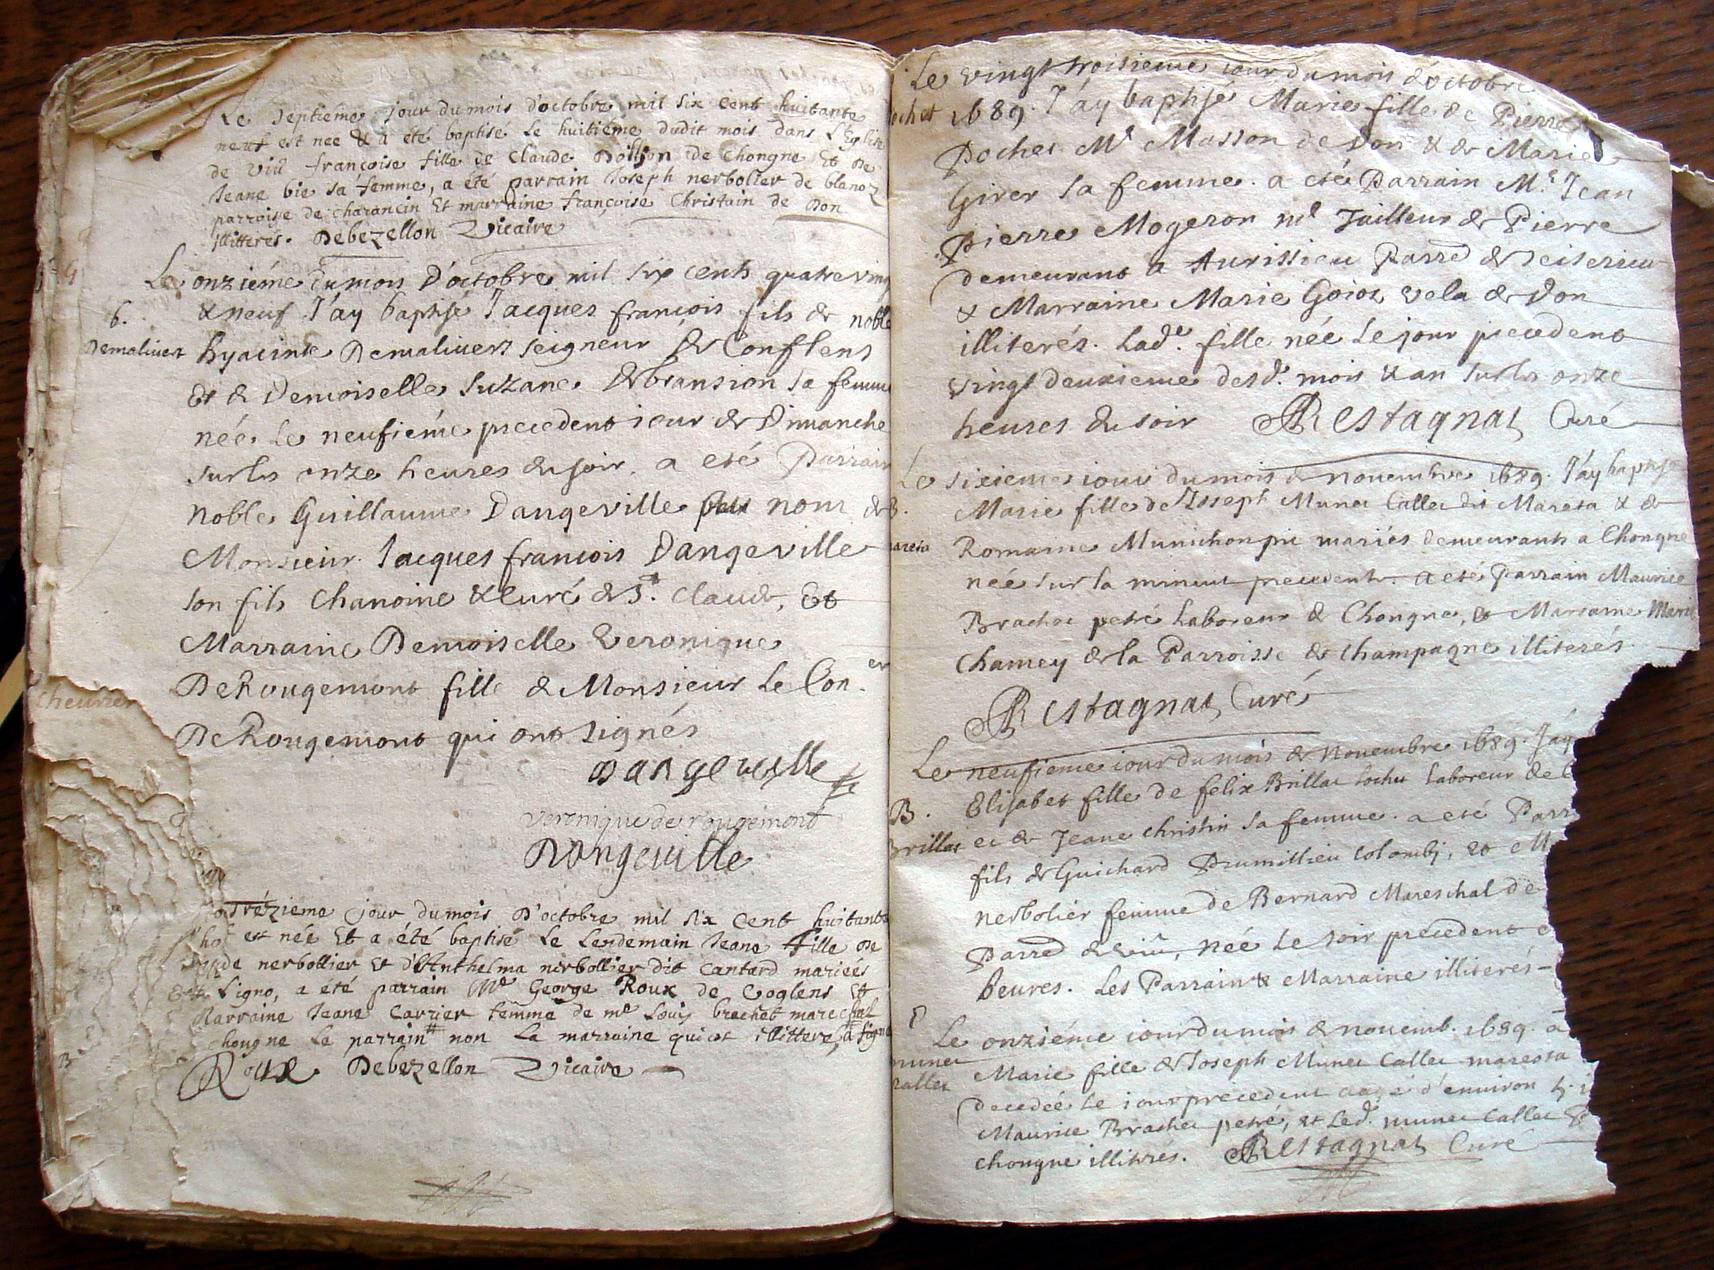 Le Septieme jour du mois d'octobre mil six cent huitante
neuf est nee & a été baptise le huitieme dudit mois dans l'Eglise
de Viu françoise fille de Claude de Chongne Et de
Jeane bie sa femme, a été parrain Joseph nerbolier de blanoz
parroise de charancin Et marraine françoise Christain de Don
illitterés. Debezellon Vicaire
Le onziéme du mois D'octobre mil six cents quatre ving
6. & neuf J'ay baptisé Jacques françois fils de noble
Demalivert hyacinte Demalivert seigneur de Conflens
Et de Demoiselle Suzane de bransion sa femme
née le neufiéme precedent jour de Dimanche
sur les onze heures du soir. a eté Parrain
noble Guillaume Dangeville nom de
Monsieur Jacques françois Dangeville
son fils Chanoine & Curé de St. Claude, Et
Marraine Demoiselle Veronique
DeRougemont fille de Monsieur Le Con.er
DeRougemont qui ont signés
Dangeville
veronique de rougemont
Dangeville
Trézieme jour du mois D'octobre mil six cent huitante
est née Et a été baptisé Le Lendemain Jeane fille de
nerbollier Et d'Anthelma nerbollier dit Cantard mariées
Ligno, a été parrain Me George Roux de Coglens Et
Marraine Jeane Carrier femme de me Louis brachet mareschal
chongne Le parrain # non La marraine qui est illittere, # signé
Roux Debezellon Vicaire
Le vingt troisieme jour du mois d'octobre
1689. J'ay baptise Marie fille de Pierre
Pochet Me Masson de Don & de Marie
Girer sa femme. a eté Parrain Me. Jean
Pierre Mogeron me Tailleur de Pierre
demeurant a Aurissieu Parre de
& Marraine Marie Goiot vela de Don
illiterés. Lade. fille née le jour precedent
vingt deuxieme desd. mois & an sur les onze
heures du soir Restagnat Curé
Le sixieme jour du mois de novembre 1689. J'ay baptise
Marie fille de Joseph Munet Callet dit Maresta & de
Romaine mariés demeurants a Chongne
née sur la minuit precedente. a eté Parrain Maurice
Brachet petré Laboreur de Chongne, & Marraine Marie
Chamey de la Parroisse de Champagne illiterés.
Restagnat Curé
Le neufieme jour du mois de Novembre 1689. J'ay
B. Elisabet fille de felix Brillat Laboreur de
Brillat et de Jeane Christin sa femme. a eté Parr
fils de Guichard Drumillieu Colomby, &
nerbolier femme de Bernard Mareschal de
Parre de viu, née le soir precedent
heures. Les Parrain & Marraine illiterés
Le onziéme jour du mois de novemb. 1689. a
munet Marie fille de Joseph Munet Callet maresta
callet decedée le jour precedent aagée d'environ
Maurice Brachet petré, et Led. munet Callet
chongne illitrés. Restagnat Curé